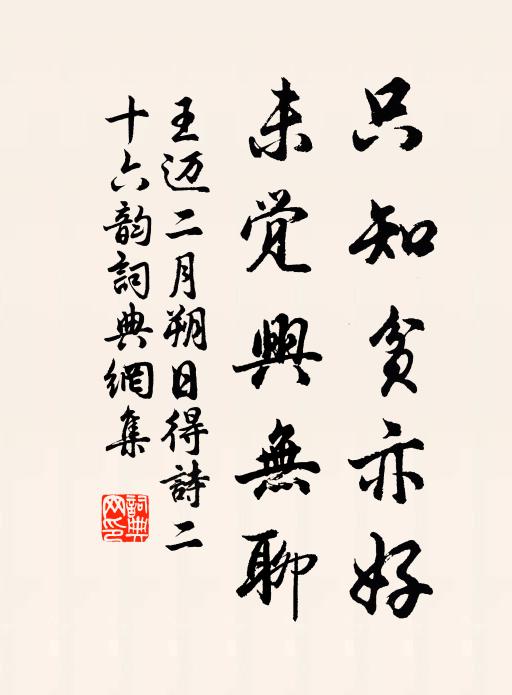 只知貧亦好
未覚興無聊
王迈二月朔日得詩二
十六韵詞典網集
詞典网印